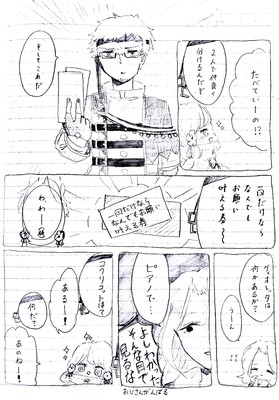 たべていーの!?
２人で仲良く
分けるんだぞ
そしてこれだ
一回だけなら
なんでも
お願い
叶える券〜
一回だけなら
なんでもお願い
叶える券
わわ…
ヴィオレッタは
何かあるか？
うーん
ピアノで…
よしわかった
そんな目で
見るな
コクリコットはて
ある〜！
何だ？
あのねー！
おじさんがんばる